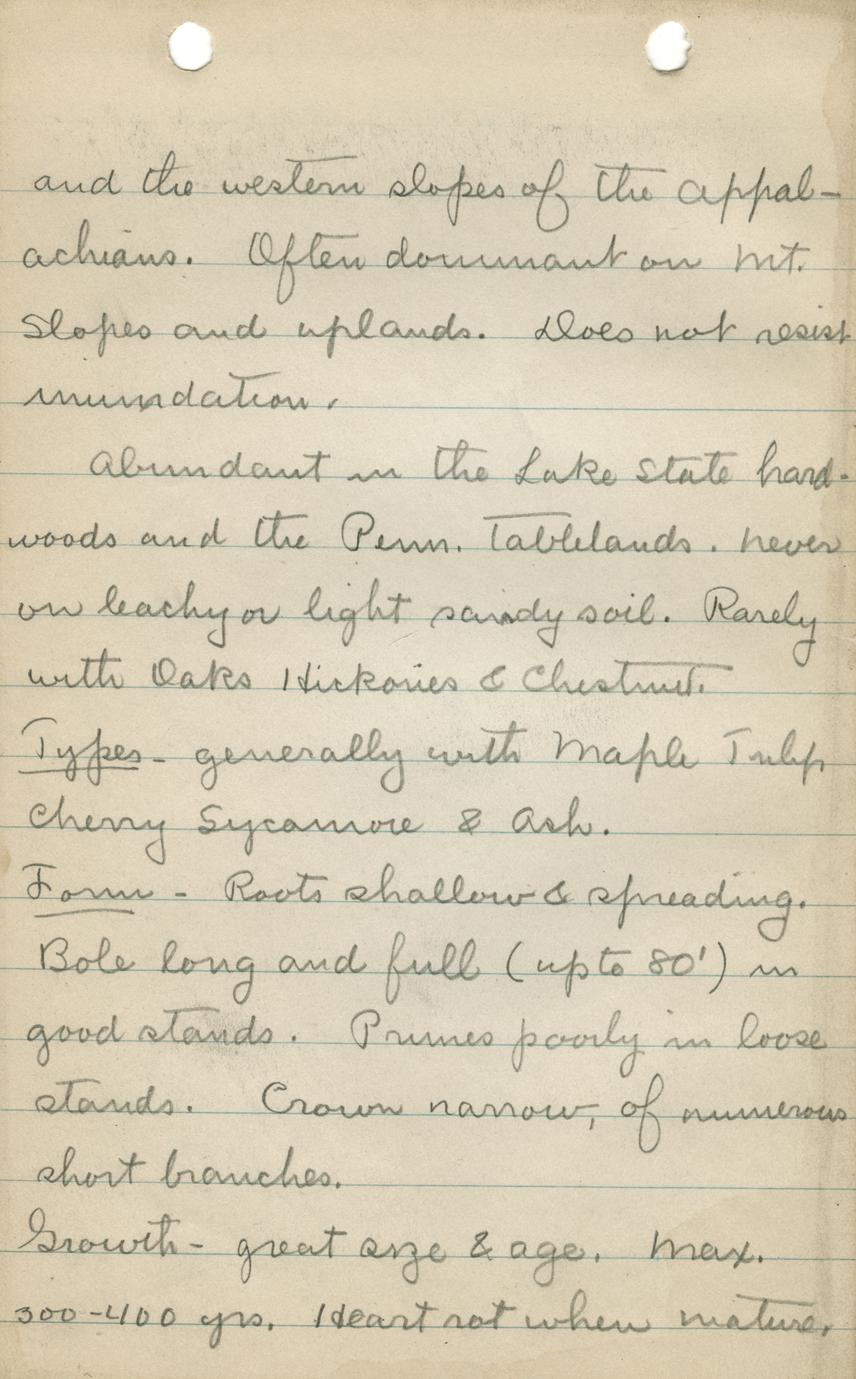 and the western slopes of the Appal-
achians. Often dominant on Mt.
slopes and uplands. Does not resist
inundation.
Abundant in the Lake State hard-
woods and the Penn. Tablelands. Never
on leachy or light sandy soil. Rarely
with Oaks Hickories & Chestnut.
Types - generally with Maple Tulip
Cherry Sycamore & Ash.
Form - Roots shallow & spreading.
Bole long and full (up to 80') in
good stands. Prunes poorly in loose
stands. Crown narrow, of numerous
short branches.
Growth - great size & age. Max.
300-400 yrs. Heart rot when mature.